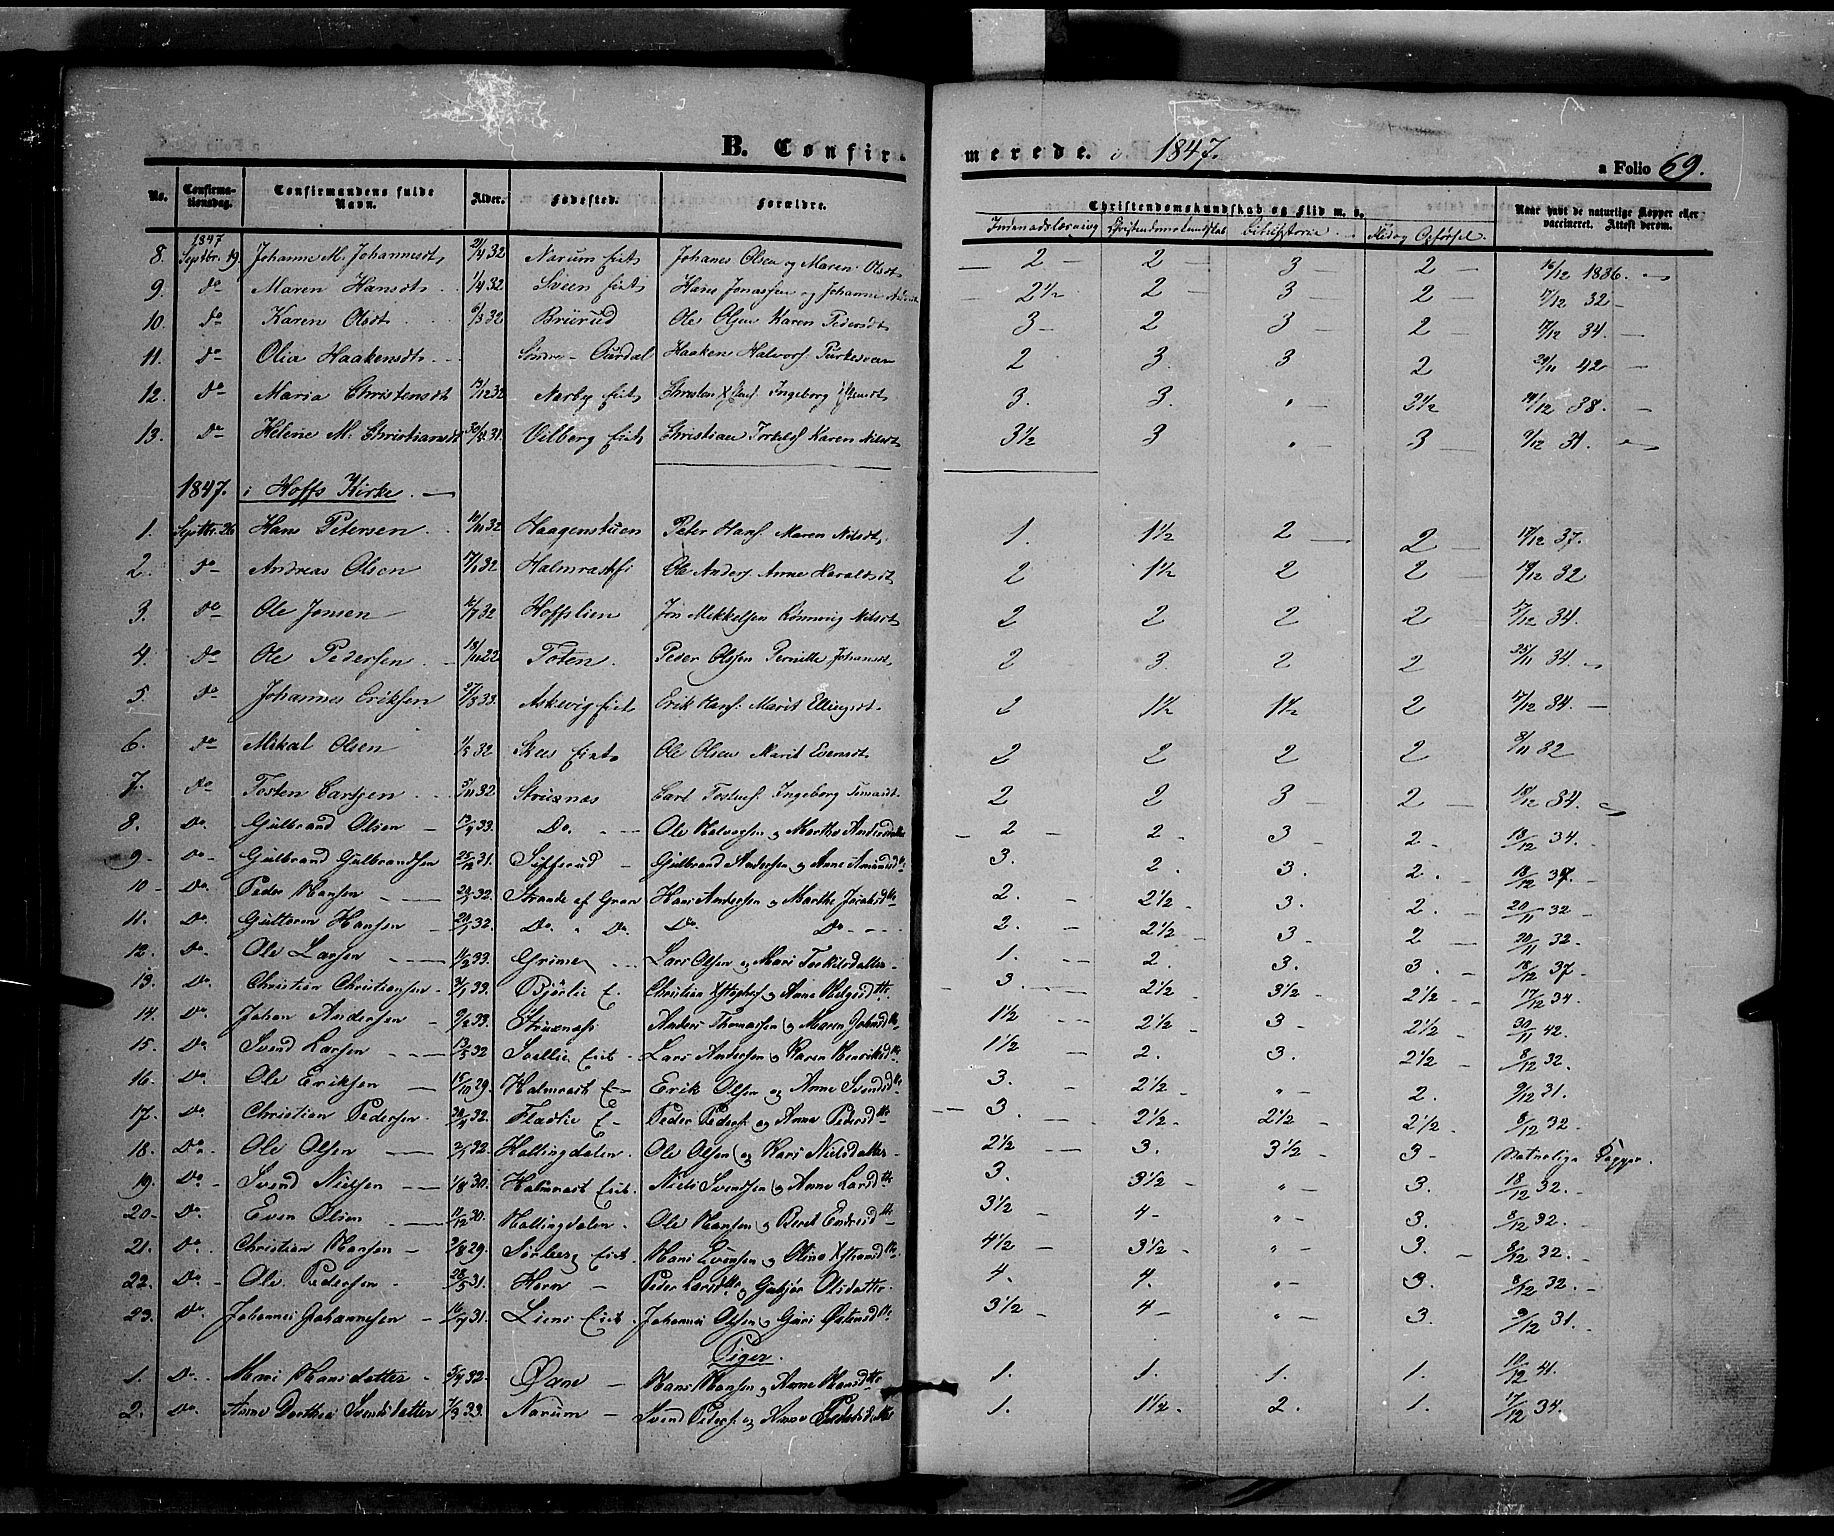 B. Confirmerede. 1847. a Folio 69.
No. Confirmationsdag. Confirmandens fulde Navn. Alder. Fødested. Forældre. Christendomskundskab og Flid m. v. Naar havt de naturlige Kopper eller vaccineret. Attest derom.
Indenadslæsning Christendomskundskab Bibelhistorie Flid og Opførsel
8. 1847 Septbr. 19. Johanne M. Johannesdt 32 Narum Eiet Johanes Olsen og Maren Olsdt 2 2 3 2 16/12 1836.
9. Do Maren Hansdt 1/4 32 Sveen Eiet Hans Jonassen og Johanne 2½ 2 3 2 17/12 32
10. Do Karen Olsdt 6/3 32 Brurud Ole Olsen Karen Pedersdt 3 2 3 2 17/12 34.
11. Do Olia Haakensdt Søndre Aurdal Haaken Halvors. 2 3. 3 2 29/11 42
12. Do Maria Christensdt 13/12 32 Narby Eiet Ingeborg 3. 3. " 2½ 19/12 38.
13. Do Helene M. Christiansdt 31. Vilberg Eiet Christian Torkels. Karen Nilsdt 3½ 3 " 3 9/12 31.
1847. i Hoffs Kirke.
1. Septbr. 26 Hans Petersen 10/11 32 Haagenstuen Peter Hans. Maren Nilsdt 1. 1½ 2 2 17/12 37.
2. Do Andreas Olsen 32 Halmrast Ole Anders. Anne Haraldsdt 2 1½ 2 2 19/12 32
3. Do Ole Jonsen 32 Hoffslien Jon Mikkelsen Rønnvig Nilsdt 2 2 2 2 17/12 34.
4. Do Ole Pedersen 18/10 22 Toten. Peder Olsen Pernille Johansdt 2 3. 2 2 25/11 34.
5. Do Johannes Eriksen 27/8 33. Askevig Eiet Erik Hans. Marit Ellingsdt 2 1½ 1½ 2 17/12 34.
6. Do Mikal Olsen 1/5 32 Eiet Ole Olsen Marit Evensdt 2 2 2 2 8/11 32
7. Do Tosten Carlsen 5/11 32 Struxnæs Carl Tostens. Ingeborg 2 2 3 2 18/12 34.
8. Do. Gulbrand Olsen 33. Do. Ole Halvorsen og Marthe Andersdatter 2 2 3 2. 18/12 34.
9. Do. Gulbrand Gulbrandsen 25/12 31. Sufferud Gulbrand Andersen og Anne Amundsdtr 3. 2. 3. 2. 18/12 37.
10 Do. Peder Hansen 32. Strande af Gran Hans Andersen og Marthe Jacobsdtr 2. 2½ 3. 2. 20/11 32
11. Do. Guttorm Hansen 32. Do. " Do. Do. Do. 2. 2½ 3 2 20/11 32.
12. Do. Ole Larsen 11/2 33. Grimen Lars Olsen og Mari Torkilsdatter 1. 2. 3. 3. 18/12 37
13. Do. Christian Christiansen 33. Bjørlie E. Christian og Anne Helgesdtr 3. 2½ 3½ 2½ 17/12 34.
14. Do. Johan Andersen 9/2 33. Struxnæs Anders Thomassen og Maren Johnsdtr 1½ 2½ 3 2½ 30/11 42.
15. Do. Svend Larsen 13/5 32 Sollie Eiet. Lars Andersen og Karen Henriksdtr 1½ 2. 3. 2½ 8/12 32.
16. Do. Ole Eriksen 15/10 29. Halmrast E Erik Olsen og Anne Svendsdtr 3. 2½ " 2. 9/12 31.
17. Do. Christian Pedersen 32. Fladlie E Peder Peders. og Anne Pedersdtr 3. 2½ 2½ 2½ 8/12 32.
18. Do. Ole Olsen 32. Hallingdalen Ole Olsen og Kari Nielsdatter 2½ 3. 3½ 3 Naturlige Kopper.
19. Do. Svend Nielsen 1/8 30. Halmrast Eiet. Niels Svendsen og Anne Larsdtr 3. 3½ " 3. 18/12 32.
20 Do. Even Olsen 11/12 30. Hallingdalen. Ole Hansen og Beret Endresdtr 3½ 4 " 3. 8/12 32.
21. Do. Christian Hansen 2/8 29. Sørberg Eiet. Hans Evensen og Oline 4½ 3½ " 3. 8/12 32.
22. Do. Ole Pedersen 28/5 31. Horn Peder og Gubjør Olsdatter 4. 4. " 3. 8/12 32.
23. Do Johannes Johannesen 31. Liens Eiet. Johannes Olsen og Guri Østensdtr 3½ 4 " 3. 9/12 31.
Piger.
1. Do. Mari Hansdatter 32. Øxne Hans Hansen og Anne Hansdtr 1. 1. 1. 1. 10/12 41.
2. Do. Anne Dorthea Svendsdatter 33. Narum Svend Peders. og Anne Pedersdatter 1. 1½. 2. 1. 17/12 34.